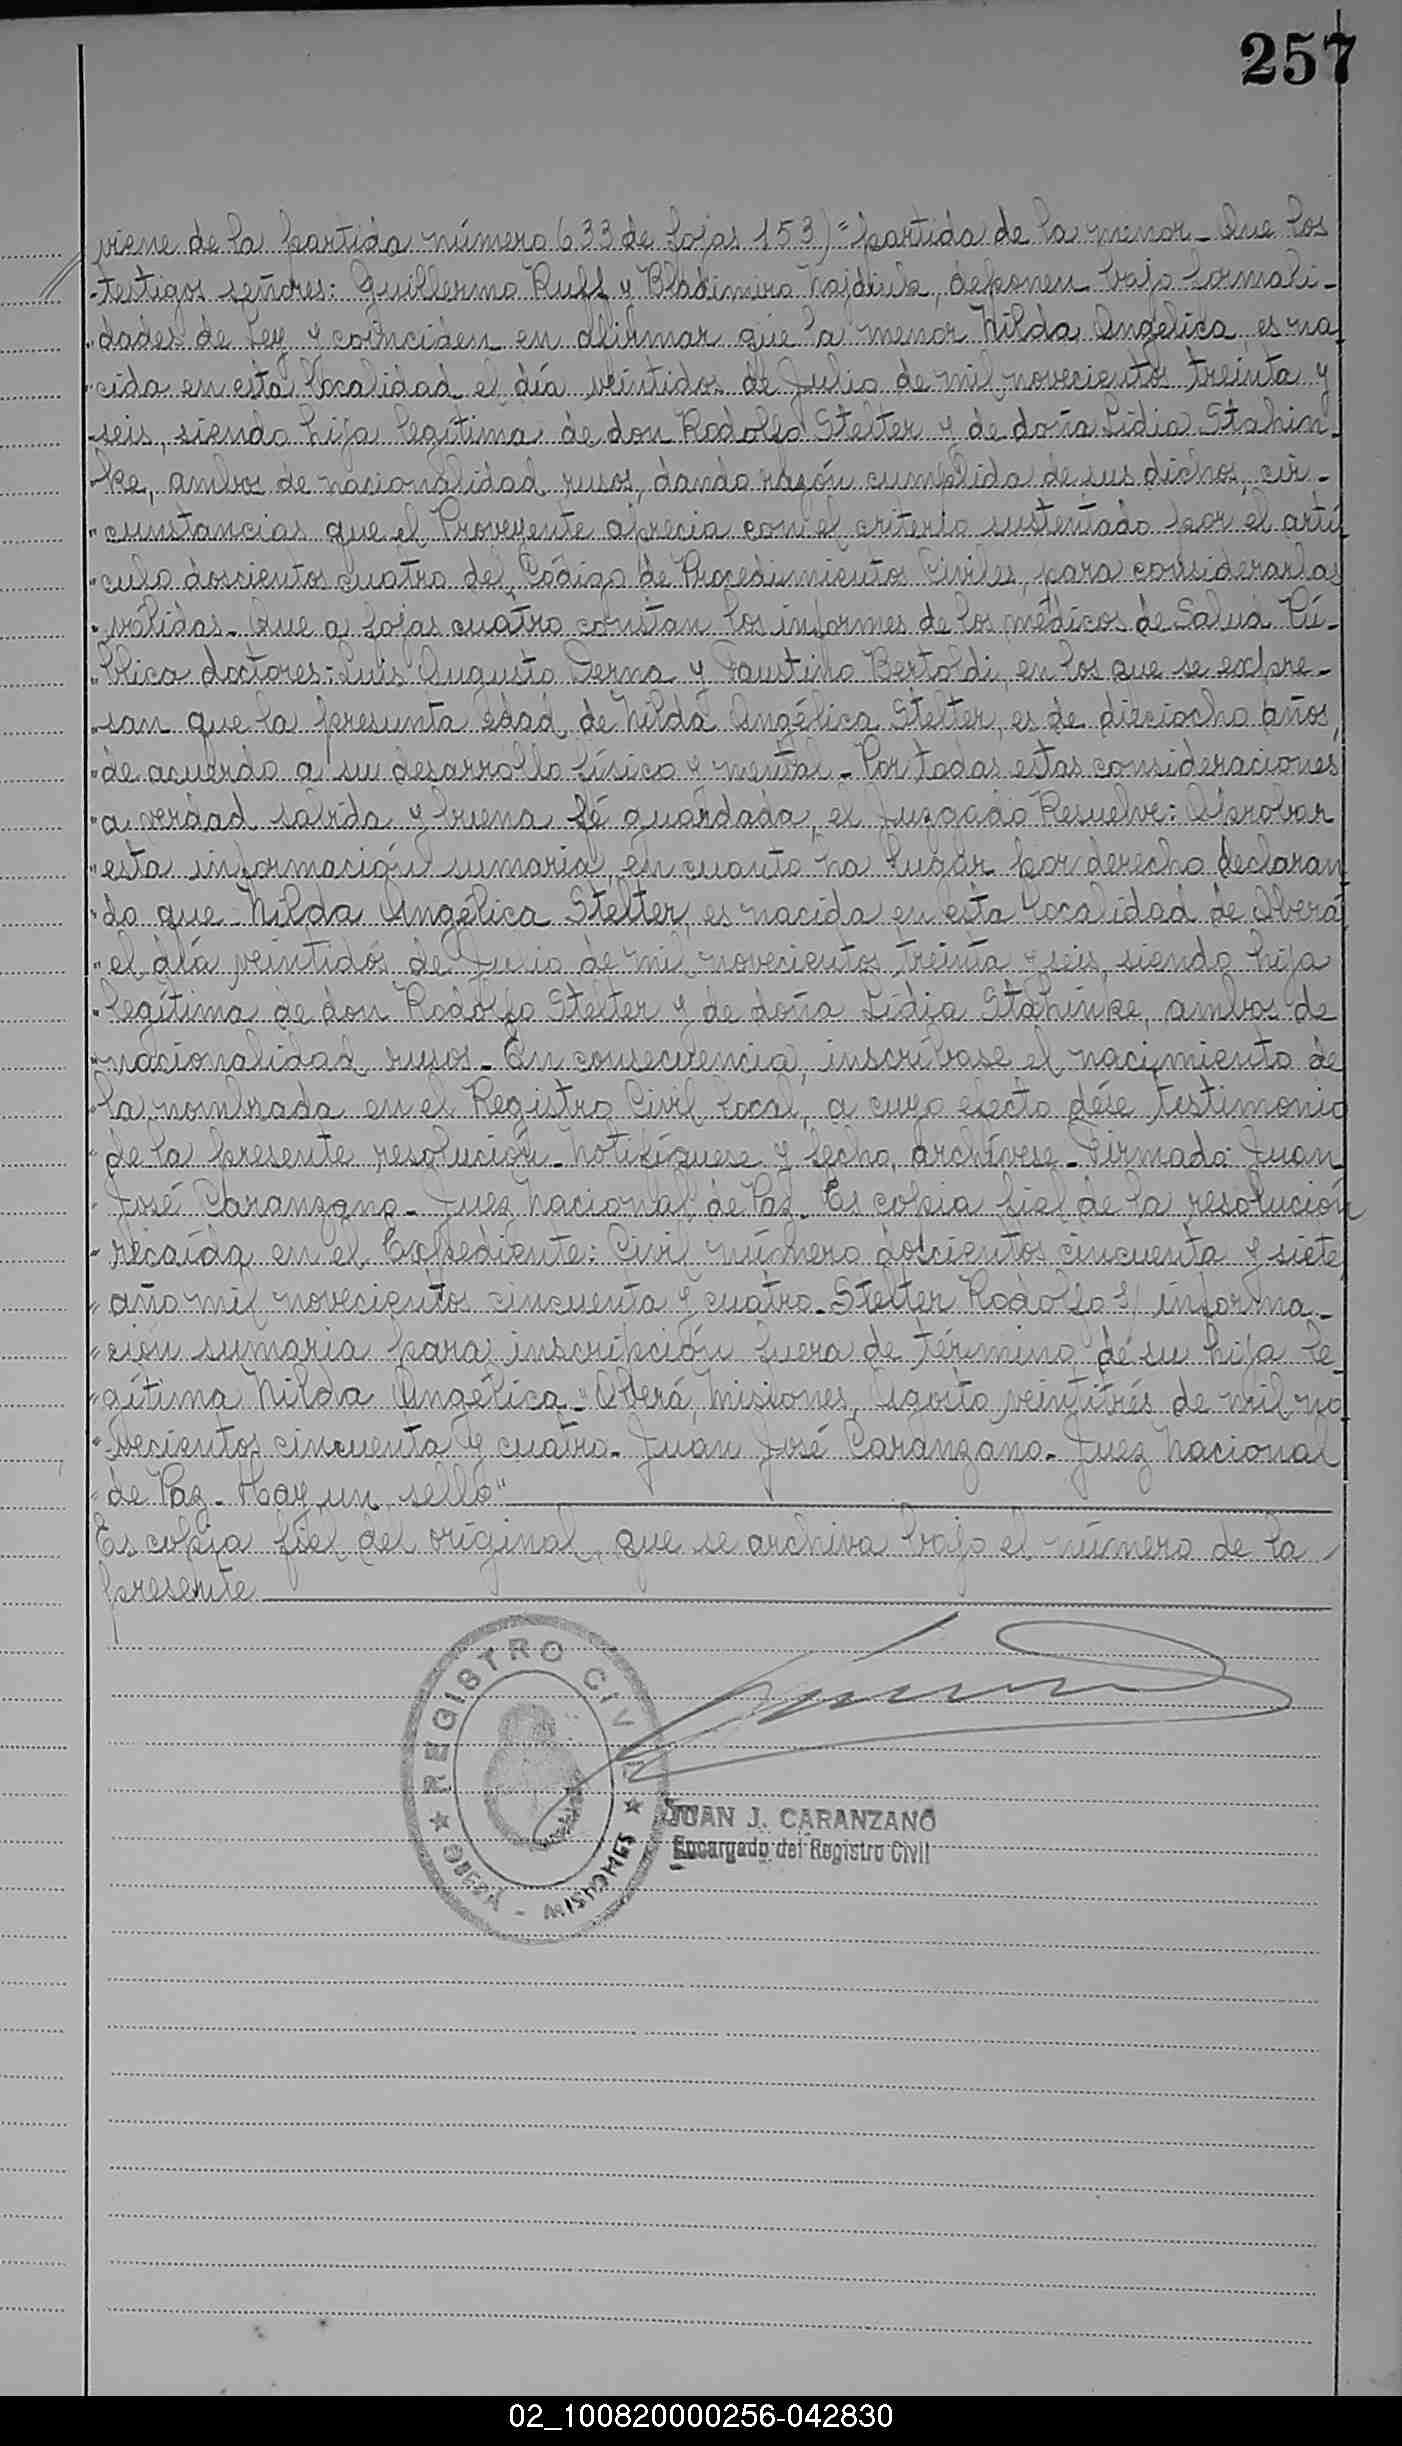 257
viene de la partida número 633 de fojas 153) "partida de la menor - Que los
"testigos señores: Guillermo Ruff y Bladimiro Najdiuk, deponen bajo formali-
"dades de Ley y coinciden en afirmar que la menor Nilda Angélica es na
"cida en esta localidad el día veintidos de Julio de mil novecientos treinta y
"seis, siendo hija legítima de don Rodolfo Stelter y de doña Lidia Stahin-
"ke, ambos de nacionalidad rusos, dando razón cumplida de sus dichos, cir-
"cunstancias que el Proveyente aprecia con el criterio sustentado por el artí
"culo doscientos cuatro del Código de Procedimientos Civiles, para considerarlas
"válidas - Que a fojas cuatro constan los informes de los médicos de Salud Pú-
"blica doctores: Luis Augusto Derna y Faustino Bertoldi, en los que se expre-
"san que la presunta edad de Nilda Angélica Stelter, es de dieciocho años,
"de acuerdo a su desarrollo físico y mental - Por todas estas consideraciones,
"a verdad sabida y buena fé guardada, el Juzgado Resuelve: Aprobar
"esta información sumaria, en cuanto ha lugar por derecho declaran
"do que Nilda Angélica Stelter, es nacida en esta localidad de Oberá
"el día veintidós de Julio de mil novecientos treinta y seis, siendo hija
"legítima de don Rodolfo Stelter y de doña Lidia Stahinke, ambos de
"nacionalidad rusos - En consecuencia, inscríbase el nacimiento de
"la nombrada en el Registro Civil local, a cuyo efecto dése testimonio
"de la presente resolución - Notifíquese y fecho, archívese - Firmado: Juan
"José Caranzano - Juez Nacional de Paz - Es copia fiel de la resolución
"recaída en el Expediente: Civil número doscientos cincuenta y siete,
"año mil novecientos cincuenta y cuatro - Stelter Rodolfo S/ informa-
"ción sumaria para inscripción fuera de término de su hija le
"gítima Nilda Angélica - Oberá, Misiones, Agosto veintitrés de mil no
"vecientos cincuenta y cuatro - Juan José Caranzano - Juez Nacional
"de Paz - Hay un sello"
Es copia fiel del original, que se archiva bajo el número de la
presente
REGISTRO CIVIL
OBERÁ - MISIONES
JUAN J. CARANZANO
Encargado del Registro Civil
02_100820000256-042830